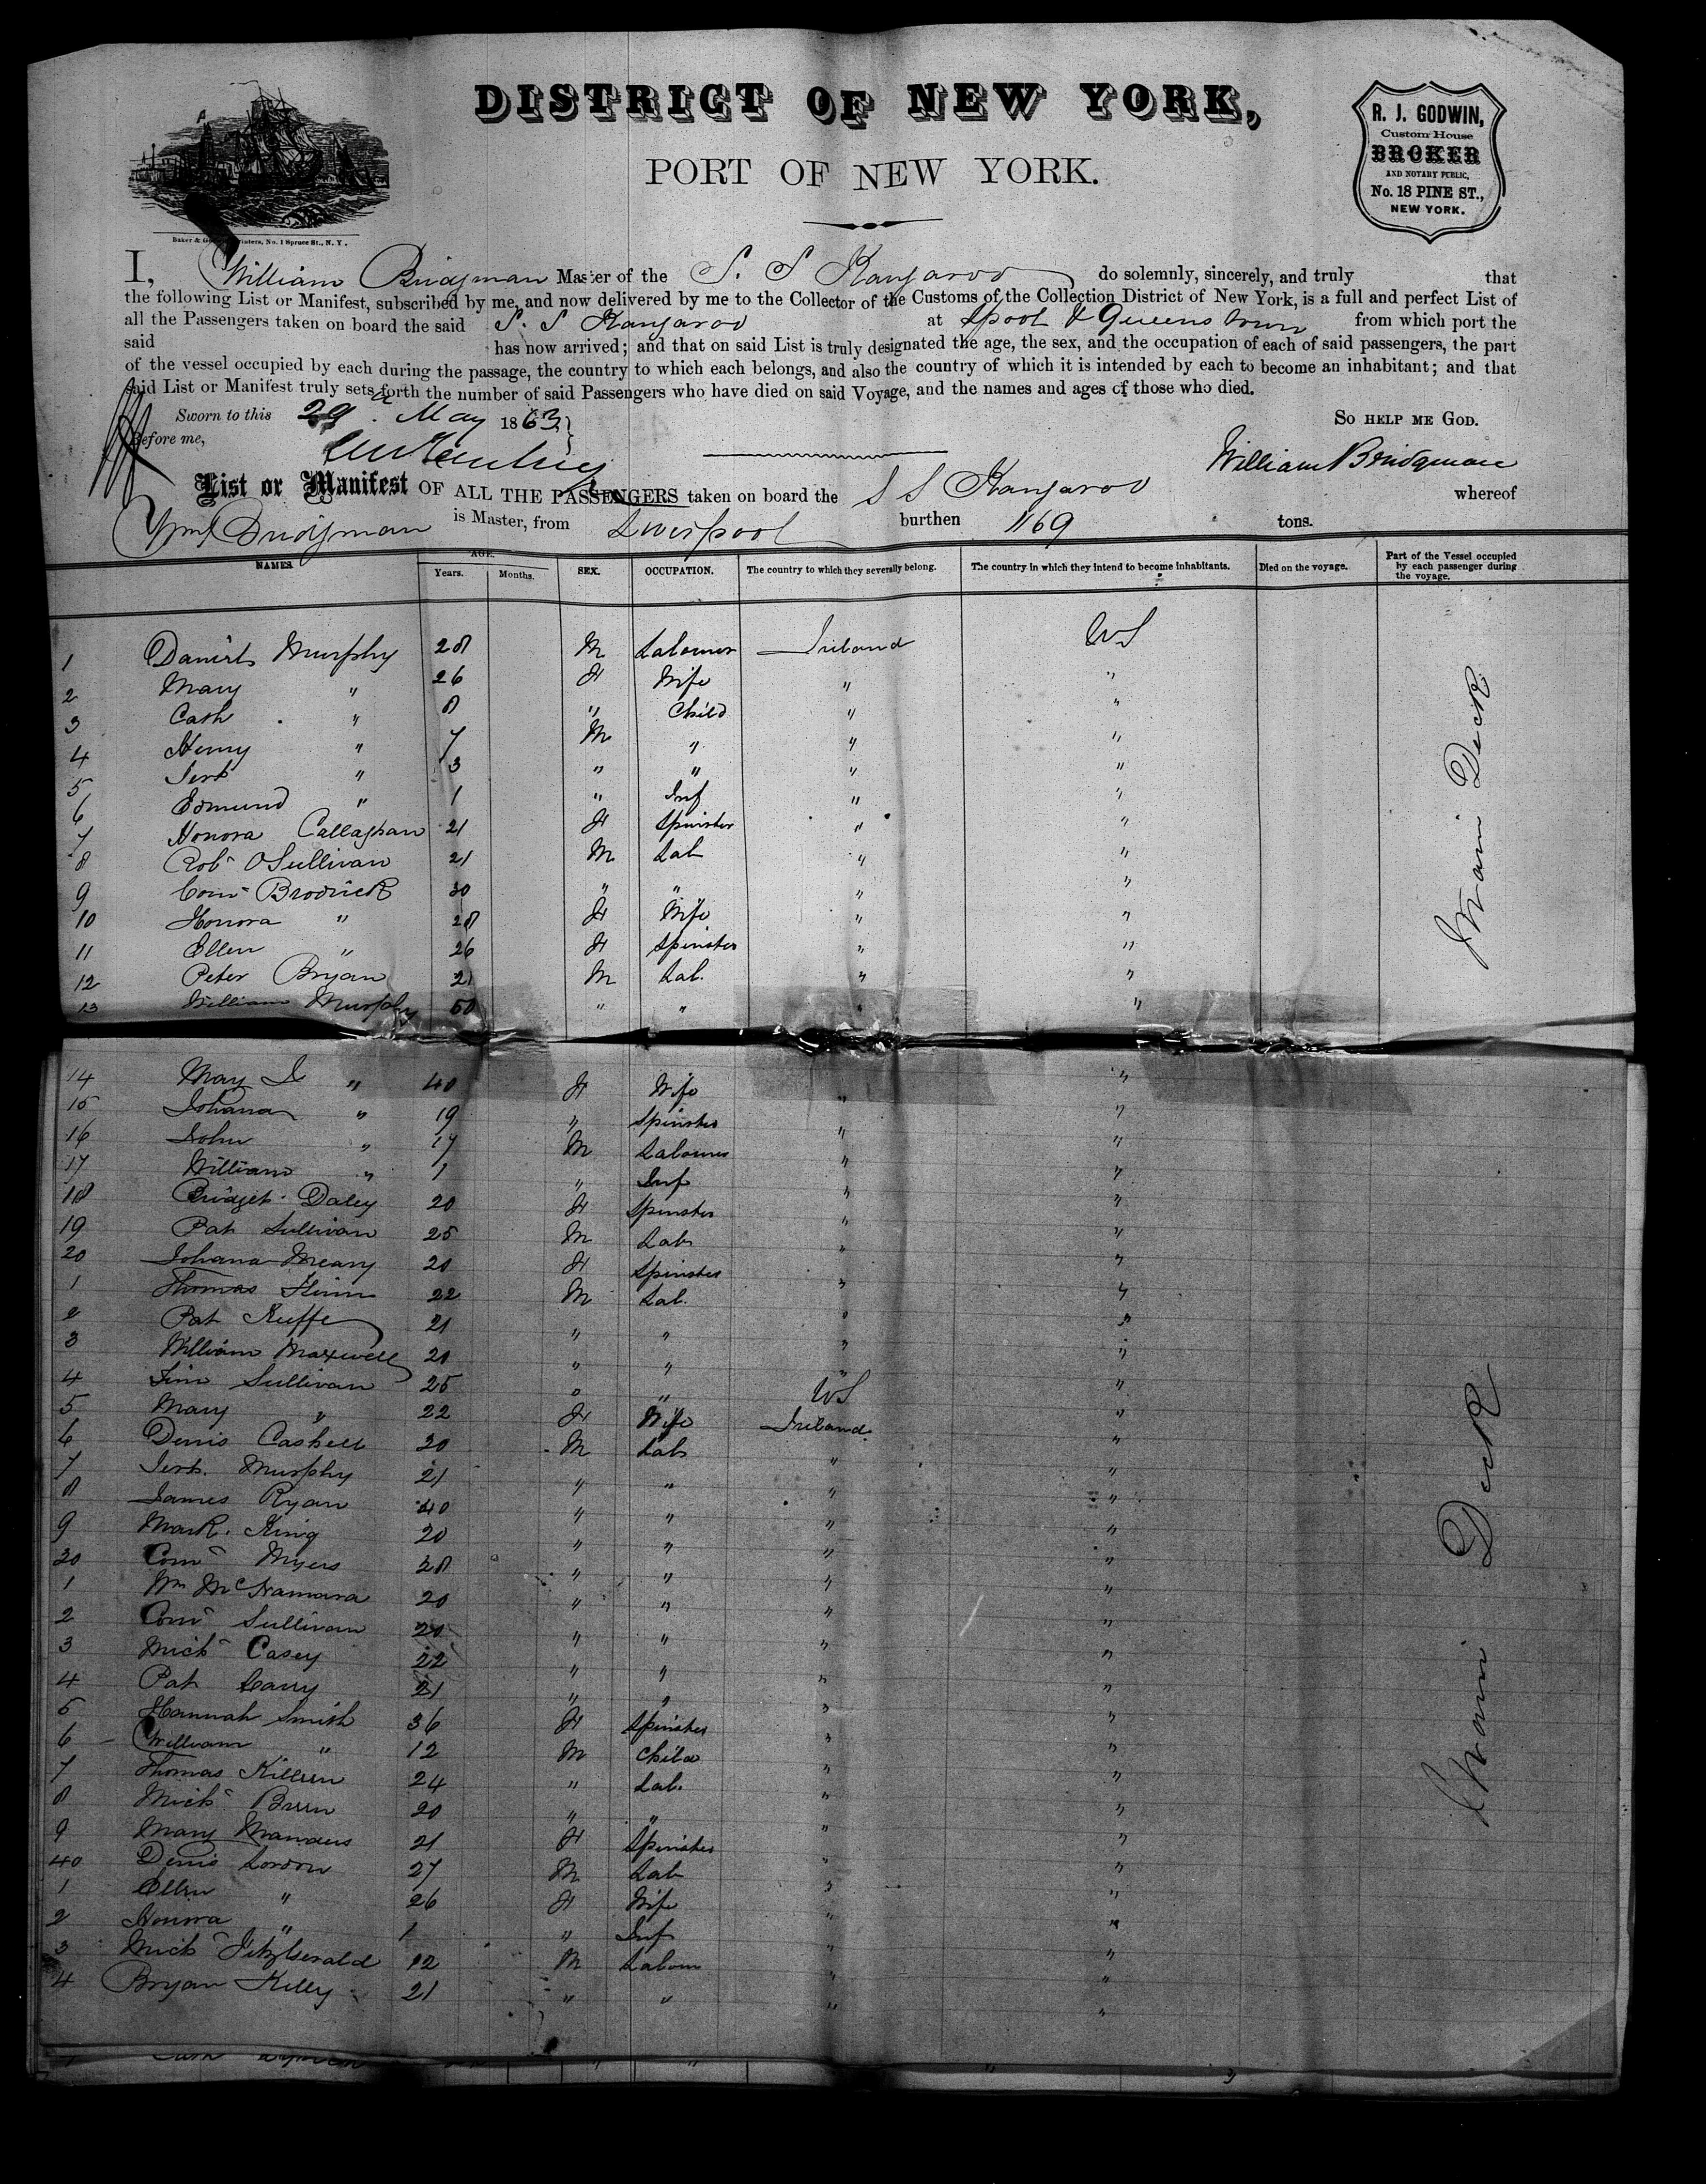 DISTRICT OF NEW YORK,
PORT OF NEW YORK.
R. J. GODWIN,
Custom House
BROKER
AND NOTARY PUBLIC,
No. 18 PINE ST.,
NEW YORK.
Baker & Printers, No. 1 Spruce St., N. Y.
I, William Bridgman Master of the S. S Kangaroo do solemnly, sincerely, and truly that
the following List or Manifest, subscribed by me, and now delivered by me to the Collector of the Customs of the Collection District of New York, is a full and perfect List of
all the Passengers taken on board the said S. S Kangaroo at Lpool & Queenstown from which port the
said has now arrived; and that on said List is truly designated the age, the sex, and the occupation of each of said passengers, the part
of the vessel occupied by each during the passage, the country to which each belongs, and also the country of which it is intended by each to become an inhabitant; and that
said List or Manifest truly sets forth the number of said Passengers who have died on said Voyage, and the names and ages of those who died.
Sworn to this 29th May 1863 So HELP ME GOD.
Before me,
William Bridgman
List or Manifest OF ALL THE PASSENGERS taken on board the S S Kangaroo whereof
Wm Bridgman is Master, from Liverpool burthen 1169 tons.
NAMES. AGE. Years. Months. SEX. OCCUPATION. The country to which they severally belong. The country in which they intend to become inhabitants. Died on the voyage. Part of the Vessel occupied by each passenger during the voyage.
1 Daniel Murphy 28 M Labourer Ireland US
2 Mary " 26 F Wife " "
3 Cath " 8 " Child " "
4 Henry " 7 M " " "
5 Jerh " 3 " " " "
6 Edmund " 1 " Inf " "
7 Honora Callaghan 21 F Spinster " "
8 Robt OSullivan 21 M Lab " "
9 Corns Brodrick 30 " " " "
10 Honora " 28 F Wife " "
11 Ellen " 26 F Spinster " "
12 Peter Bryan 21 M Lab. " "
13 William Murphy 50 " " " "
Main Deck
14 May " 40 F Wife " "
15 Johana " 19 " Spinster " "
16 John " 17 M Labourer " "
17 William " 1 " Inf " "
18 Bridget Daley 20 F Spinster " "
19 Pat Sullivan 25 M Lab " "
20 Johana Meany 20 F Spinster " "
1 Thomas Flinn 22 M Lab. " "
2 Pat Keeffe 21 " " " "
3 William Maxwell 20 " " " "
4 Tim Sullivan 25 " " US "
5 Mary " 22 F Wife Ireland "
6 Denis Cashell 20 M Lab " "
7 Jerh. Murphy 21 " " " "
8 James Ryan 40 " " " "
9 Mark King 20 " " " "
30 Corns Myers 28 " " " "
1 Wm McNamara 20 " " " "
2 Corns Sullivan 20 " " " "
3 Michl Casey 22 " " " "
4 Pat 21 " " " "
5 Hannah Smith 36 F Spinster " "
6 William " 12 M Child " "
7 Thomas Killeen 24 " Lab. " "
8 Michl Breen 20 " " " "
9 Mary Manders 21 F Spinster " "
40 Denis Lordon 27 M Lab " "
1 Ellen " 26 F Wife " "
2 Honora " 1 " Inf " "
3 Michl FitzGerald 12 M Labour " "
4 Bryan Kelly 21 " " " "
Main Deck